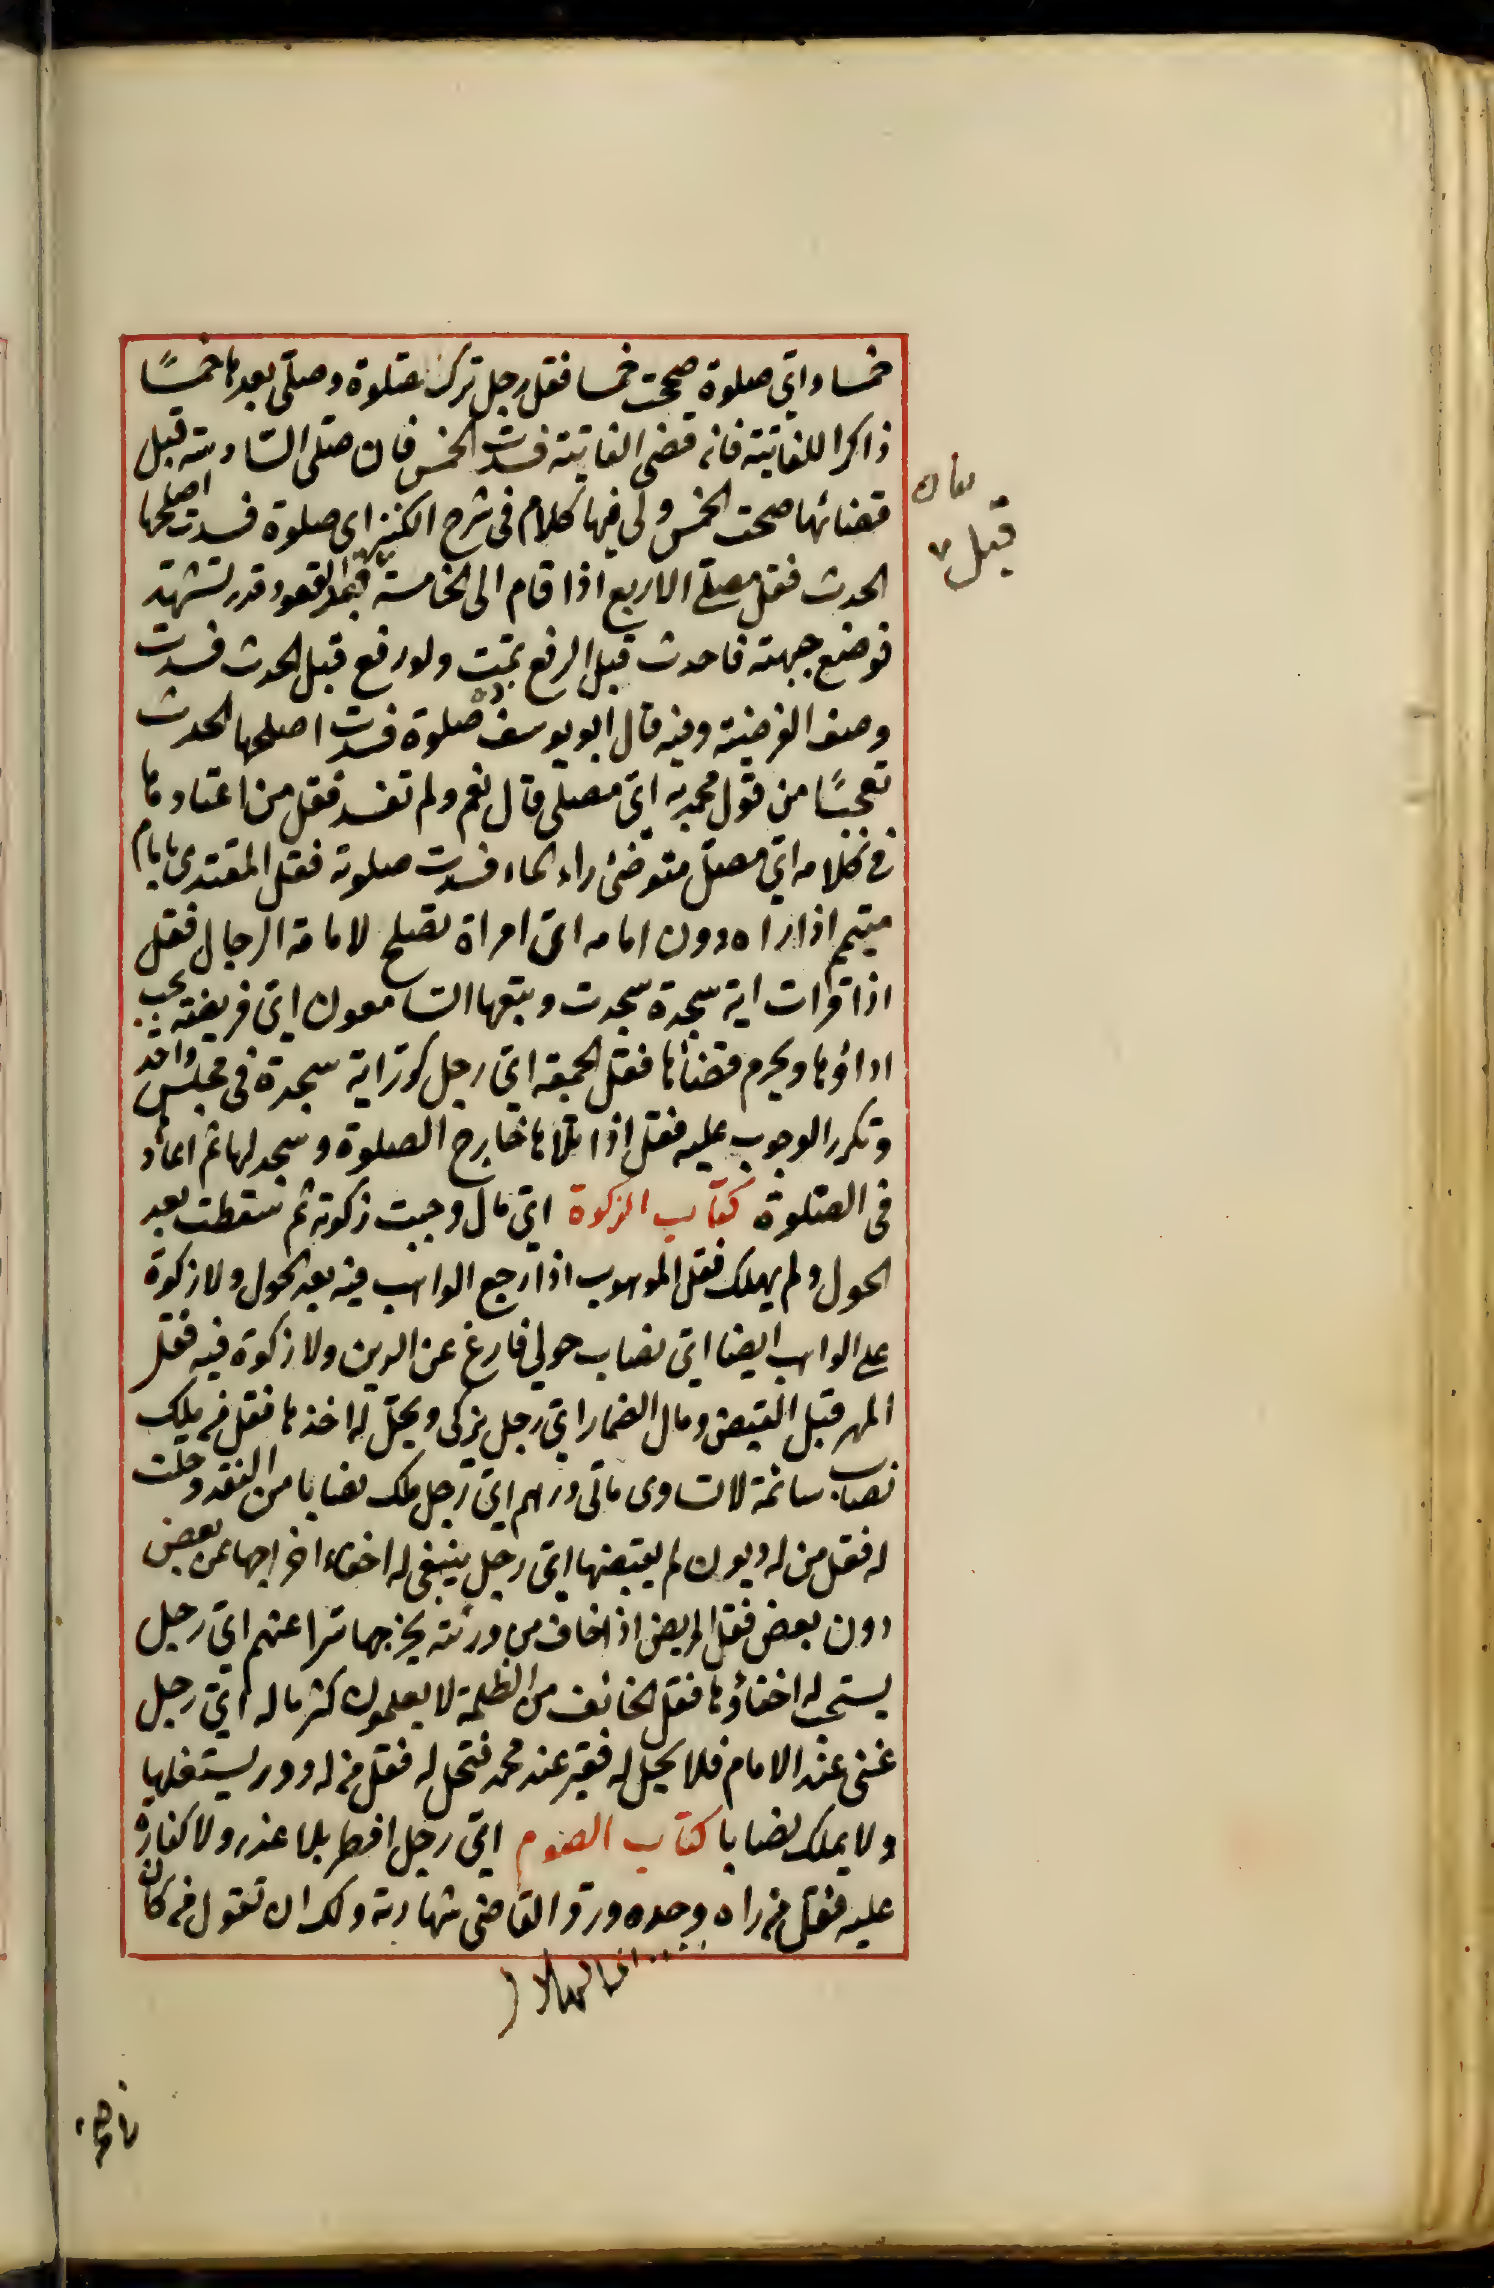 خمسا وای صلوة صححت خمسا فقل رجل ترك صلوة وصلی بعدها خمسًا
ذاكرا للفائتة فانه قضی الفائتة فسدت الخمس فان صلی السادسة قبل
قضائها صحت الخمس ولی فیها كلام فی شرح الكنز ای صلوة فسدت اصلحها
الحدث فقل مصلی الاربع اذا قام الی الخامسة قبل القعود قدر تشهد
فوضع جبهته فاحدث قبل الرفع تمت ولو رفع قبل الحدث فسدت
وصف الفرضیة وفیه قال ابویوسف صلوة فسدت اصلحها الحدث
تعجبًا من قول محمد ای مصلی قال نعم ولم تفسد فقل من اعتادها
فی كلامه ای مصل متوضئ راء الماء فسدت صلوته فقل المقتدی بامام
متیمم اذا راه دون امامه ای امراة تصلح لامامة الرجال فقل
اذا قرات ایة سجدة سجدت وتبعها السامعون ای فریضة یجب
اداؤها ویحرم قضاؤها فقل الجمعة ای رجل كرر ایة سجدة فی مجلس واحد
وتكرر الوجوب علیه فقل اذا تلاها خارج الصلوة وسجد لها ثم اعاد
فی الصلوة كتاب الزكوة ای مال وجبت زكوته ثم سقطت بعد
الحول ولم یهلك فقل الموهوب اذا رجع الواهب فیه بعد الحول ولا زكوة
علی الواهب ایضا ای نصاب حولی فارغ عن الدین ولا زكوة فیه فقل
المهر قبل القبض ومال الضمار ای رجل یزكی ویحل له اخذها فقل من یملك
نصاب سائمة لا تساوی مائتی درهم ای رجل ملك نصابا من النقد وحلت
له فقل من له دیون لم یقبضها ای رجل ینبغی له اخفاء اخراجها عن بعض
دون بعض فقل المریض اذا خاف من ورثته یخرجها سرا عنهم ای رجل
یستحب له اخفاؤها فقل الخائف من الظلمة لا یعلمون كثر ماله ای رجل
غنی عند الامام فلا یحل له فقیر عند محمد فتحل له فقل من له دور یستغلها
ولا یملك نصابا كتاب الصوم ای رجل افطر بلا عذر ولا كفارة
علیه فقل من راه وحده ورد القاضی شهادته ولك ان تقول من كان
قبل